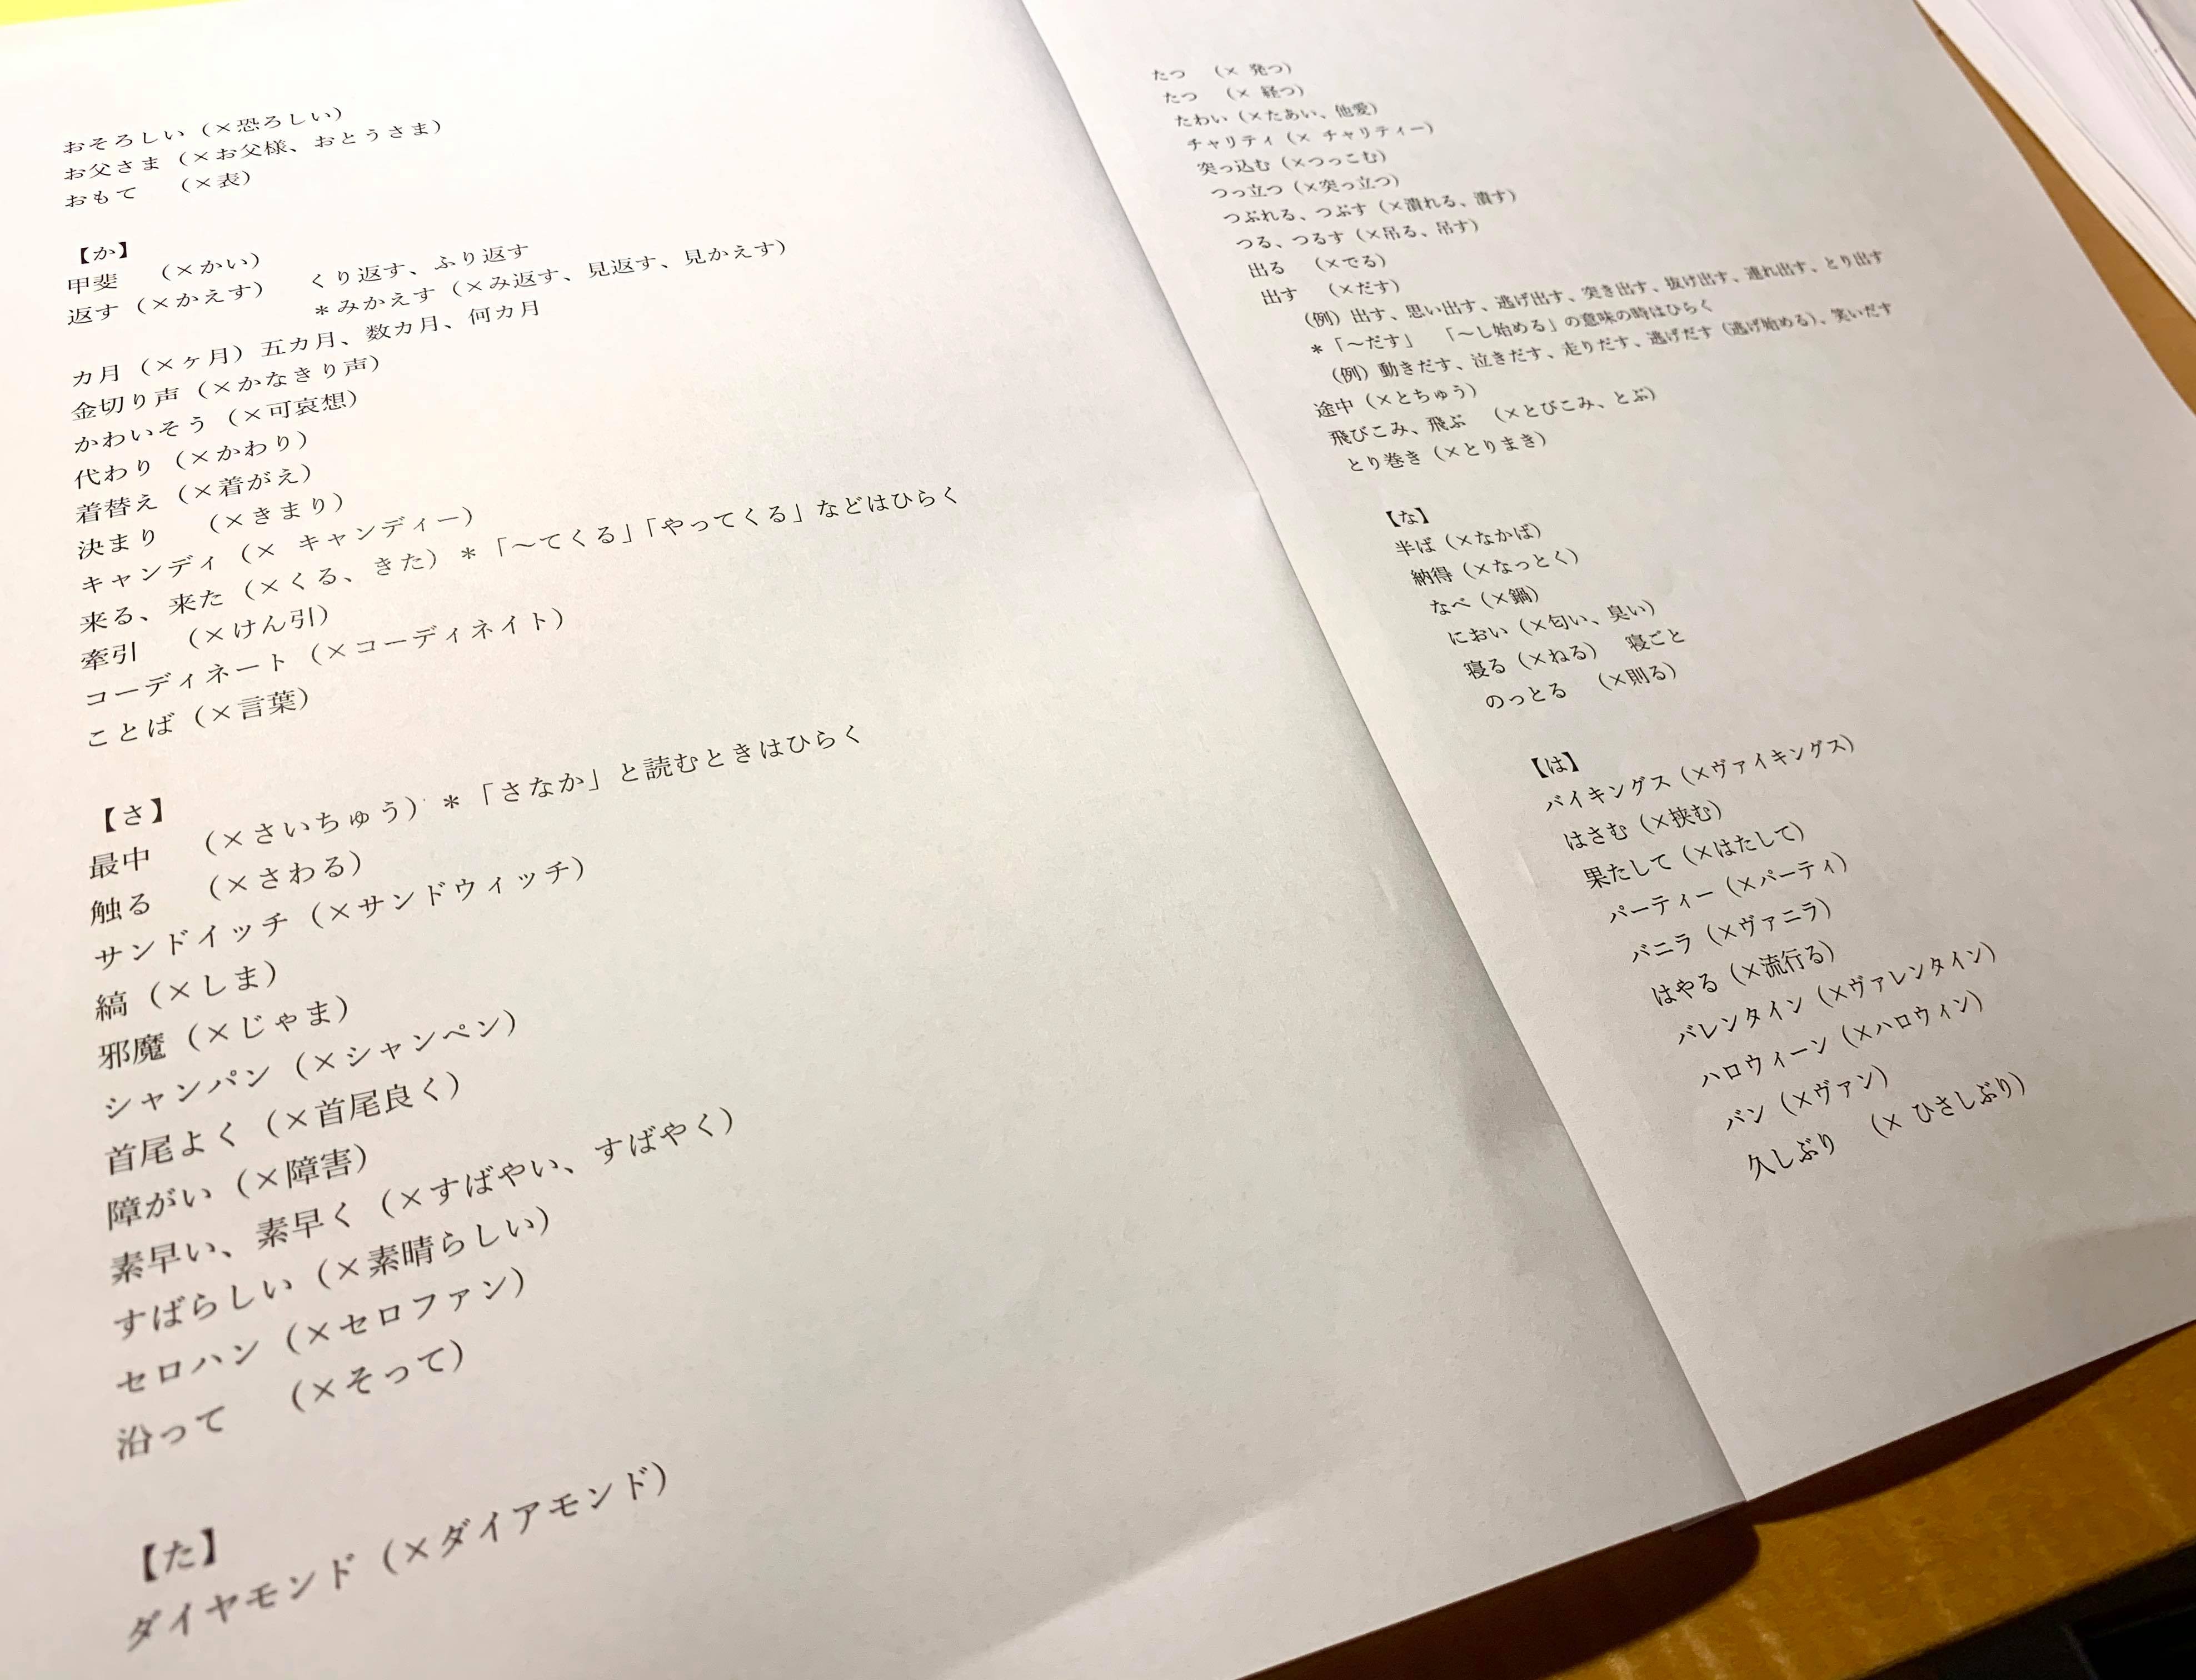 おそろしい（×恐ろしい）
お父さま（×お父様、おとうさま）
おもて　（×表）
【か】
甲斐　（×かい）
返す（×かえす）　くり返す、ふり返す
＊みかえす（×み返す、見返す、見かえす）
カ月（×ヶ月）五カ月、数カ月、何カ月
金切り声（×かなきり声）
かわいそう（×可哀想）
代わり（×かわり）
着替え（×着がえ）
決まり　（×きまり）
キャンディ（× キャンディー）
来る、来た（×くる、きた）＊「～てくる」「やってくる」などはひらく
牽引　（×けん引）
コーディネート（×コーディネイト）
ことば（×言葉）
【さ】
最中　（×さいちゅう）＊「さなか」と読むときはひらく
触る　（×さわる）
サンドイッチ（×サンドウィッチ）
縞（×しま）
邪魔（×じゃま）
シャンパン（×シャンペン）
首尾よく（×首尾良く）
障がい（×障害）
素早い、素早く（×すばやい、すばやく）
すばらしい（×素晴らしい）
セロハン（×セロファン）
沿って　（×そって）
【た】
ダイヤモンド（×ダイアモンド）
たつ　（× 発つ）
たつ　（× 経つ）
たわい（×たあい、他愛）
チャリティ（× チャリティー）
突っ込む（×つっこむ）
つっ立つ（×突っ立つ）
つぶれる、つぶす（×潰れる、潰す）
つる、つるす（×吊る、吊す）
出る　（×でる）
出す　（×だす）
（例）出す、思い出す、逃げ出す、突き出す、抜け出す、連れ出す、とり出す
＊「～だす」　「～し始める」の意味の時はひらく
（例）動きだす、泣きだす、走りだす、逃げだす（逃げ始める）、笑いだす
途中（×とちゅう）
飛びこみ、飛ぶ　（×とびこみ、とぶ）
とり巻き（×とりまき）
【な】
半ば（×なかば）
納得（×なっとく）
なべ（×鍋）
におい（×匂い、臭い）
寝る（×ねる）　寝ごと
のっとる　（×則る）
【は】
バイキングス（×ヴァイキングス）
はさむ（×挟む）
果たして（×はたして）
パーティー（×パーティ）
バニラ（×ヴァニラ）
はやる（×流行る）
バレンタイン（×ヴァレンタイン）
ハロウィーン（×ハロウィン）
バン（×ヴァン）
久しぶり　（× ひさしぶり）